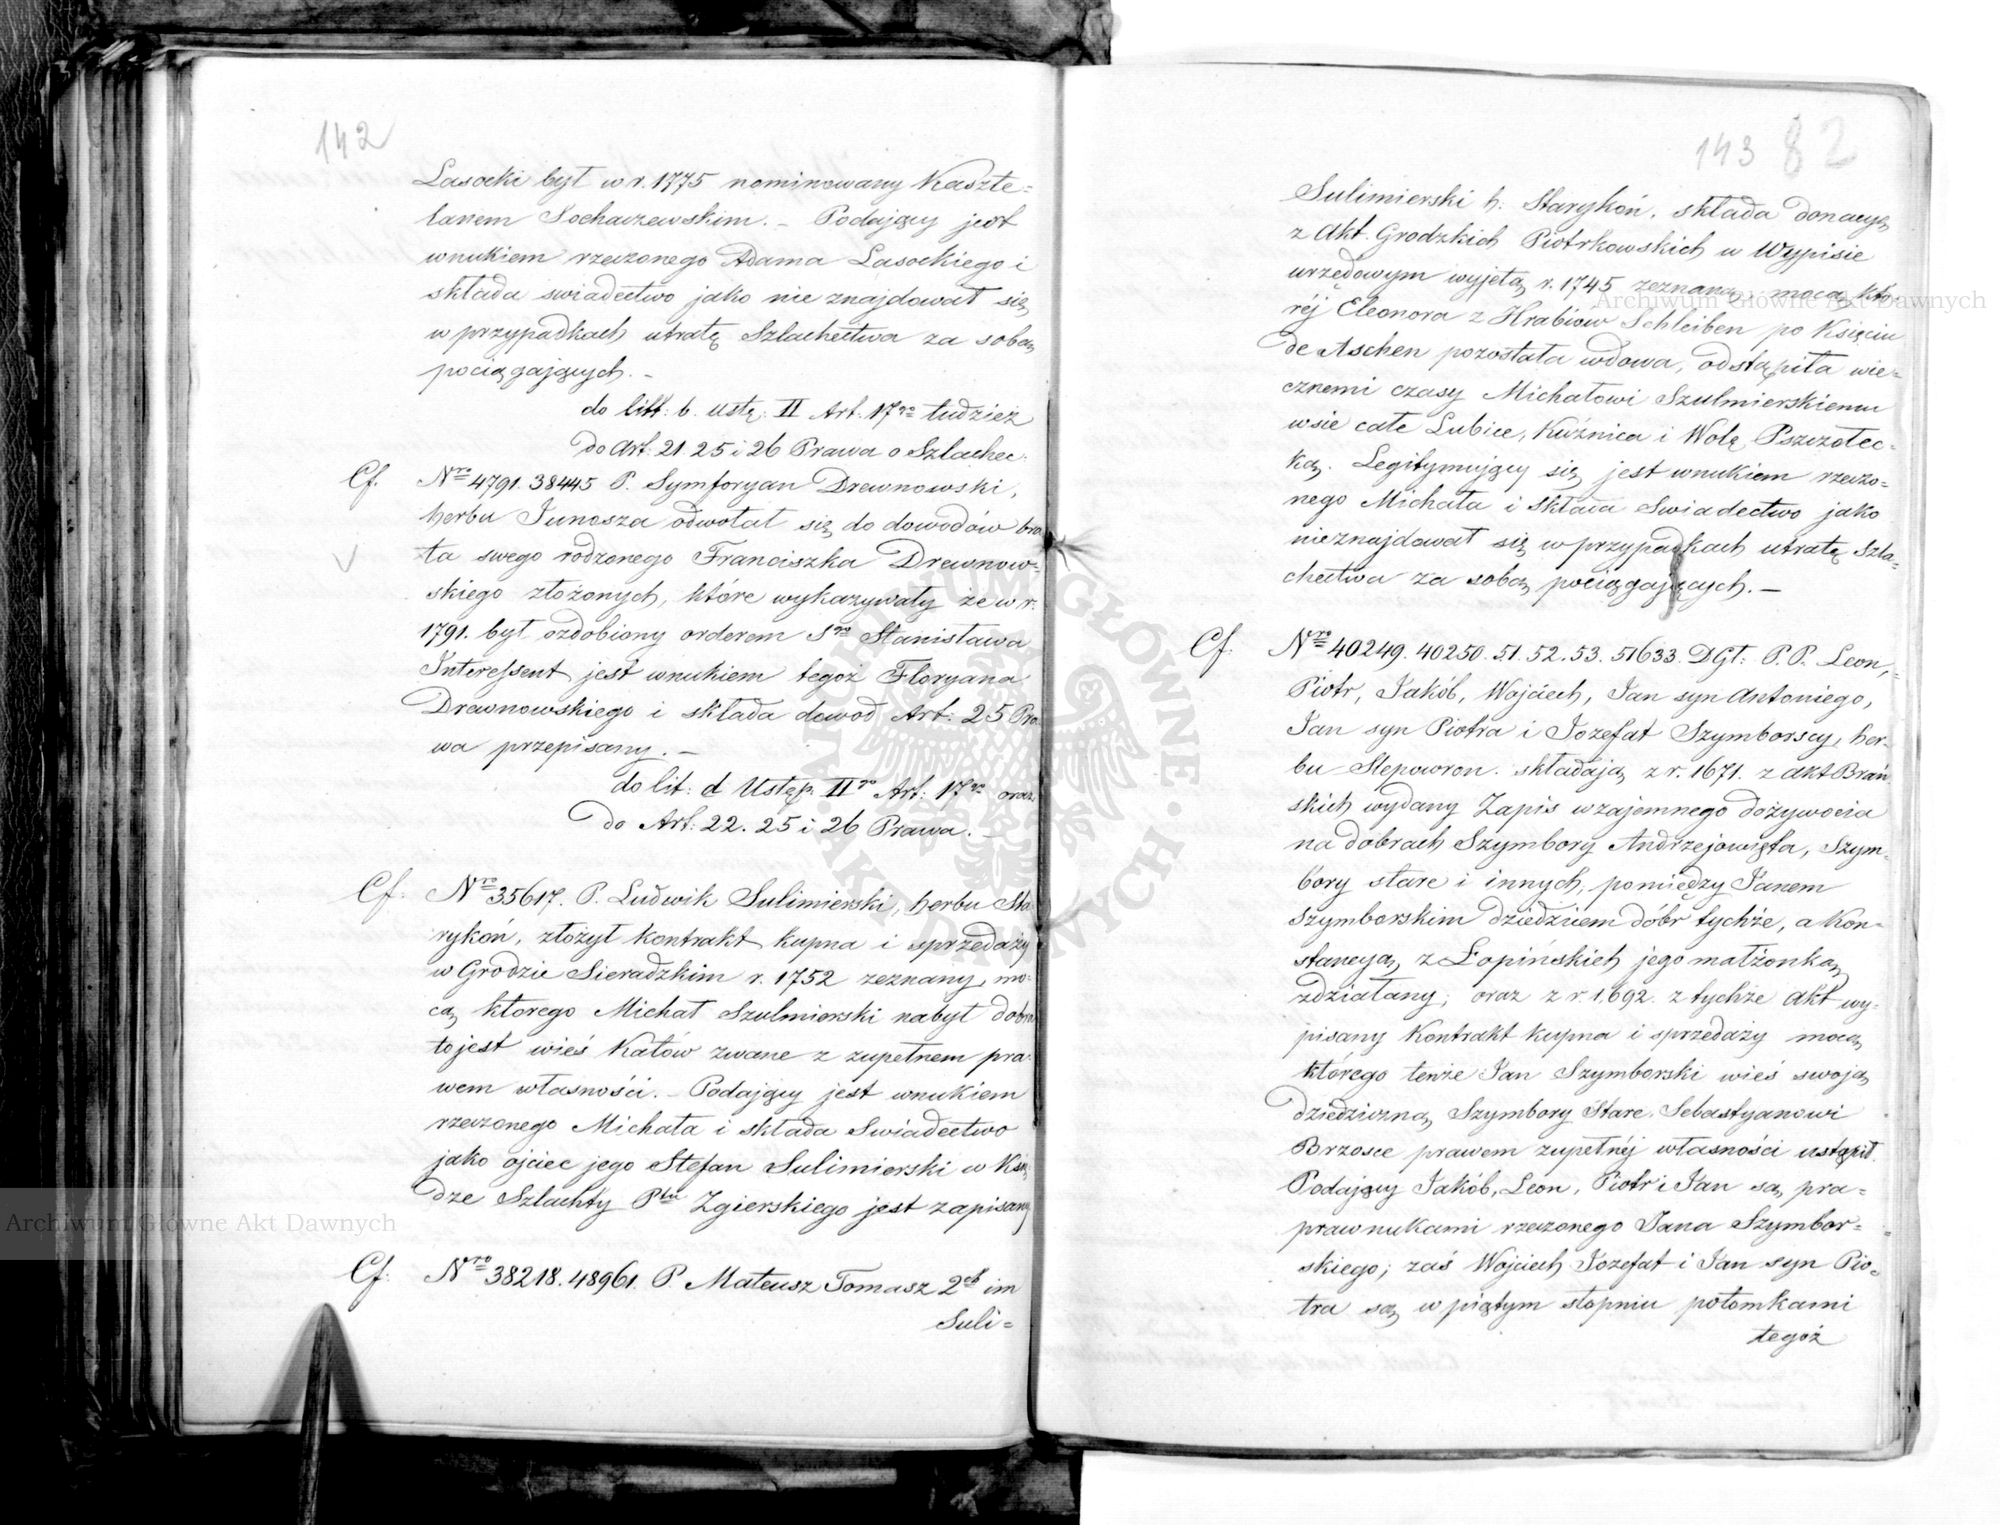 142
Lasocki był w r. 1775 nominowany Kaszte=
lanem Sochaczewskim. – Podający jest
wnukiem rzeczonego Adama Lasockiego i
składa swiadectwo jako nie znajdował się
w przypadkach utratę Szlachectwa za sobą
pociągających. –
do litt: b. ustę: II Art. 17go tudzież
do Art: 21 25 i 26 Prawa o Szlachec:
Cf. Nro 4791. 38445 P. Symforyan Drewnowski,
herbu Junosza odwołał się do dowodów bra
ta swego rodzonego Franciszka Drewnow=
skiego złożonych, które wykazywały że w r.
1791. był ozdobiony orderem Sgo Stanisława
Interessent jest wnukiem tegoż Floryana
Drewnowskiego i składa dowod Art: 25 Pra
wa przepisany. –
do lit: d Ustęp. IIgo Art: 17go oraz
do Art: 22. 25 i 26 Prawa. –
Cf. Nro 35617. P. Ludwik Sulimierski, herbu Sta
rykoń, złożył Kontrakt kupna i sprzedaży
w Grodzie Sieradzkim r. 1752 zeznany, mo=
cą ktorego Michał Szulmierski nabył dobra
to jest wieś Kałów zwane z zupełnem pra
wem własności. – Podający jest wnukiem
rzeczonego Michała i składa Swiadectwo
jako ojciec jego Stefan Sulimierski w Księ
dze Szlachty Ptu Zgierskiego jest zapisany
Cf: Nro 38218. 48961. P. Mateusz Tomasz 2ch im
Suli=
143 82
Sulimierski h. Starykoń, składa donacyą
z Akt. Grodzkich Piotrkowskich w Wypisie
urzędowym wyjętą r. 1745 zeznaną, mocą któ
réj Eleonora z Hrabiow Schleiben po Księciu
de Aschen pozostała wdowa, odstąpiła wie=
cznemi czasy Michałowi Szulmierskiemu
wsie całe Lubiec, Kuźnica i Wolę Pszczołec=
ką. Legitymujący się jest wnukiem rzeczo=
nego Michała i składa Swiadectwo jako
nieznajdował się w przypadkach utratę Szla=
chectwa za sobą pociągających. –
Cf. Nro 40249. 40250. 51. 52. 53. 51633. DGt: P. P. Leon,
Piotr, Jakób, Wojciech, Jan syn Antoniego,
Jan syn Piotra i Jozefat Szymborscy, her=
bu Slepowron. składają z r. 1671. z akt Brań
skich wydany Zapis wzajemnego dożywocia
na dobrach Szymbory Andrzejowięta, Szym=
bory stare i innych, pomiędzy Janem
Szymborskim dziedzicem dóbr tychże, a Kon=
stancyą z Łopińskich jego małżonką
zdziałany; oraz z r. 1692. z tychże Akt wy=
pisany Kontrakt kupna i sprzedaży mocą
którego tenże Jan Szymborski wieś swoją
dziedziczną Szymbory Stare Sebastyanowi
Brzosce prawem zupełnéj własności ustąpił.
Podający Jakób, Leon, Piotr i Jan są pra=
prawnukami rzeczonego Jana Szymbor=
skiego; zaś Wojciech Jozefat i Jan syn Pio=
tra są w piątym stopniu potomkami
tegoż
Archiwum Główne Akt Dawnych
Archiwum Główne Akt Dawnych
ARCHIWUM GŁÓWNE · AKT DAWNYCH ·